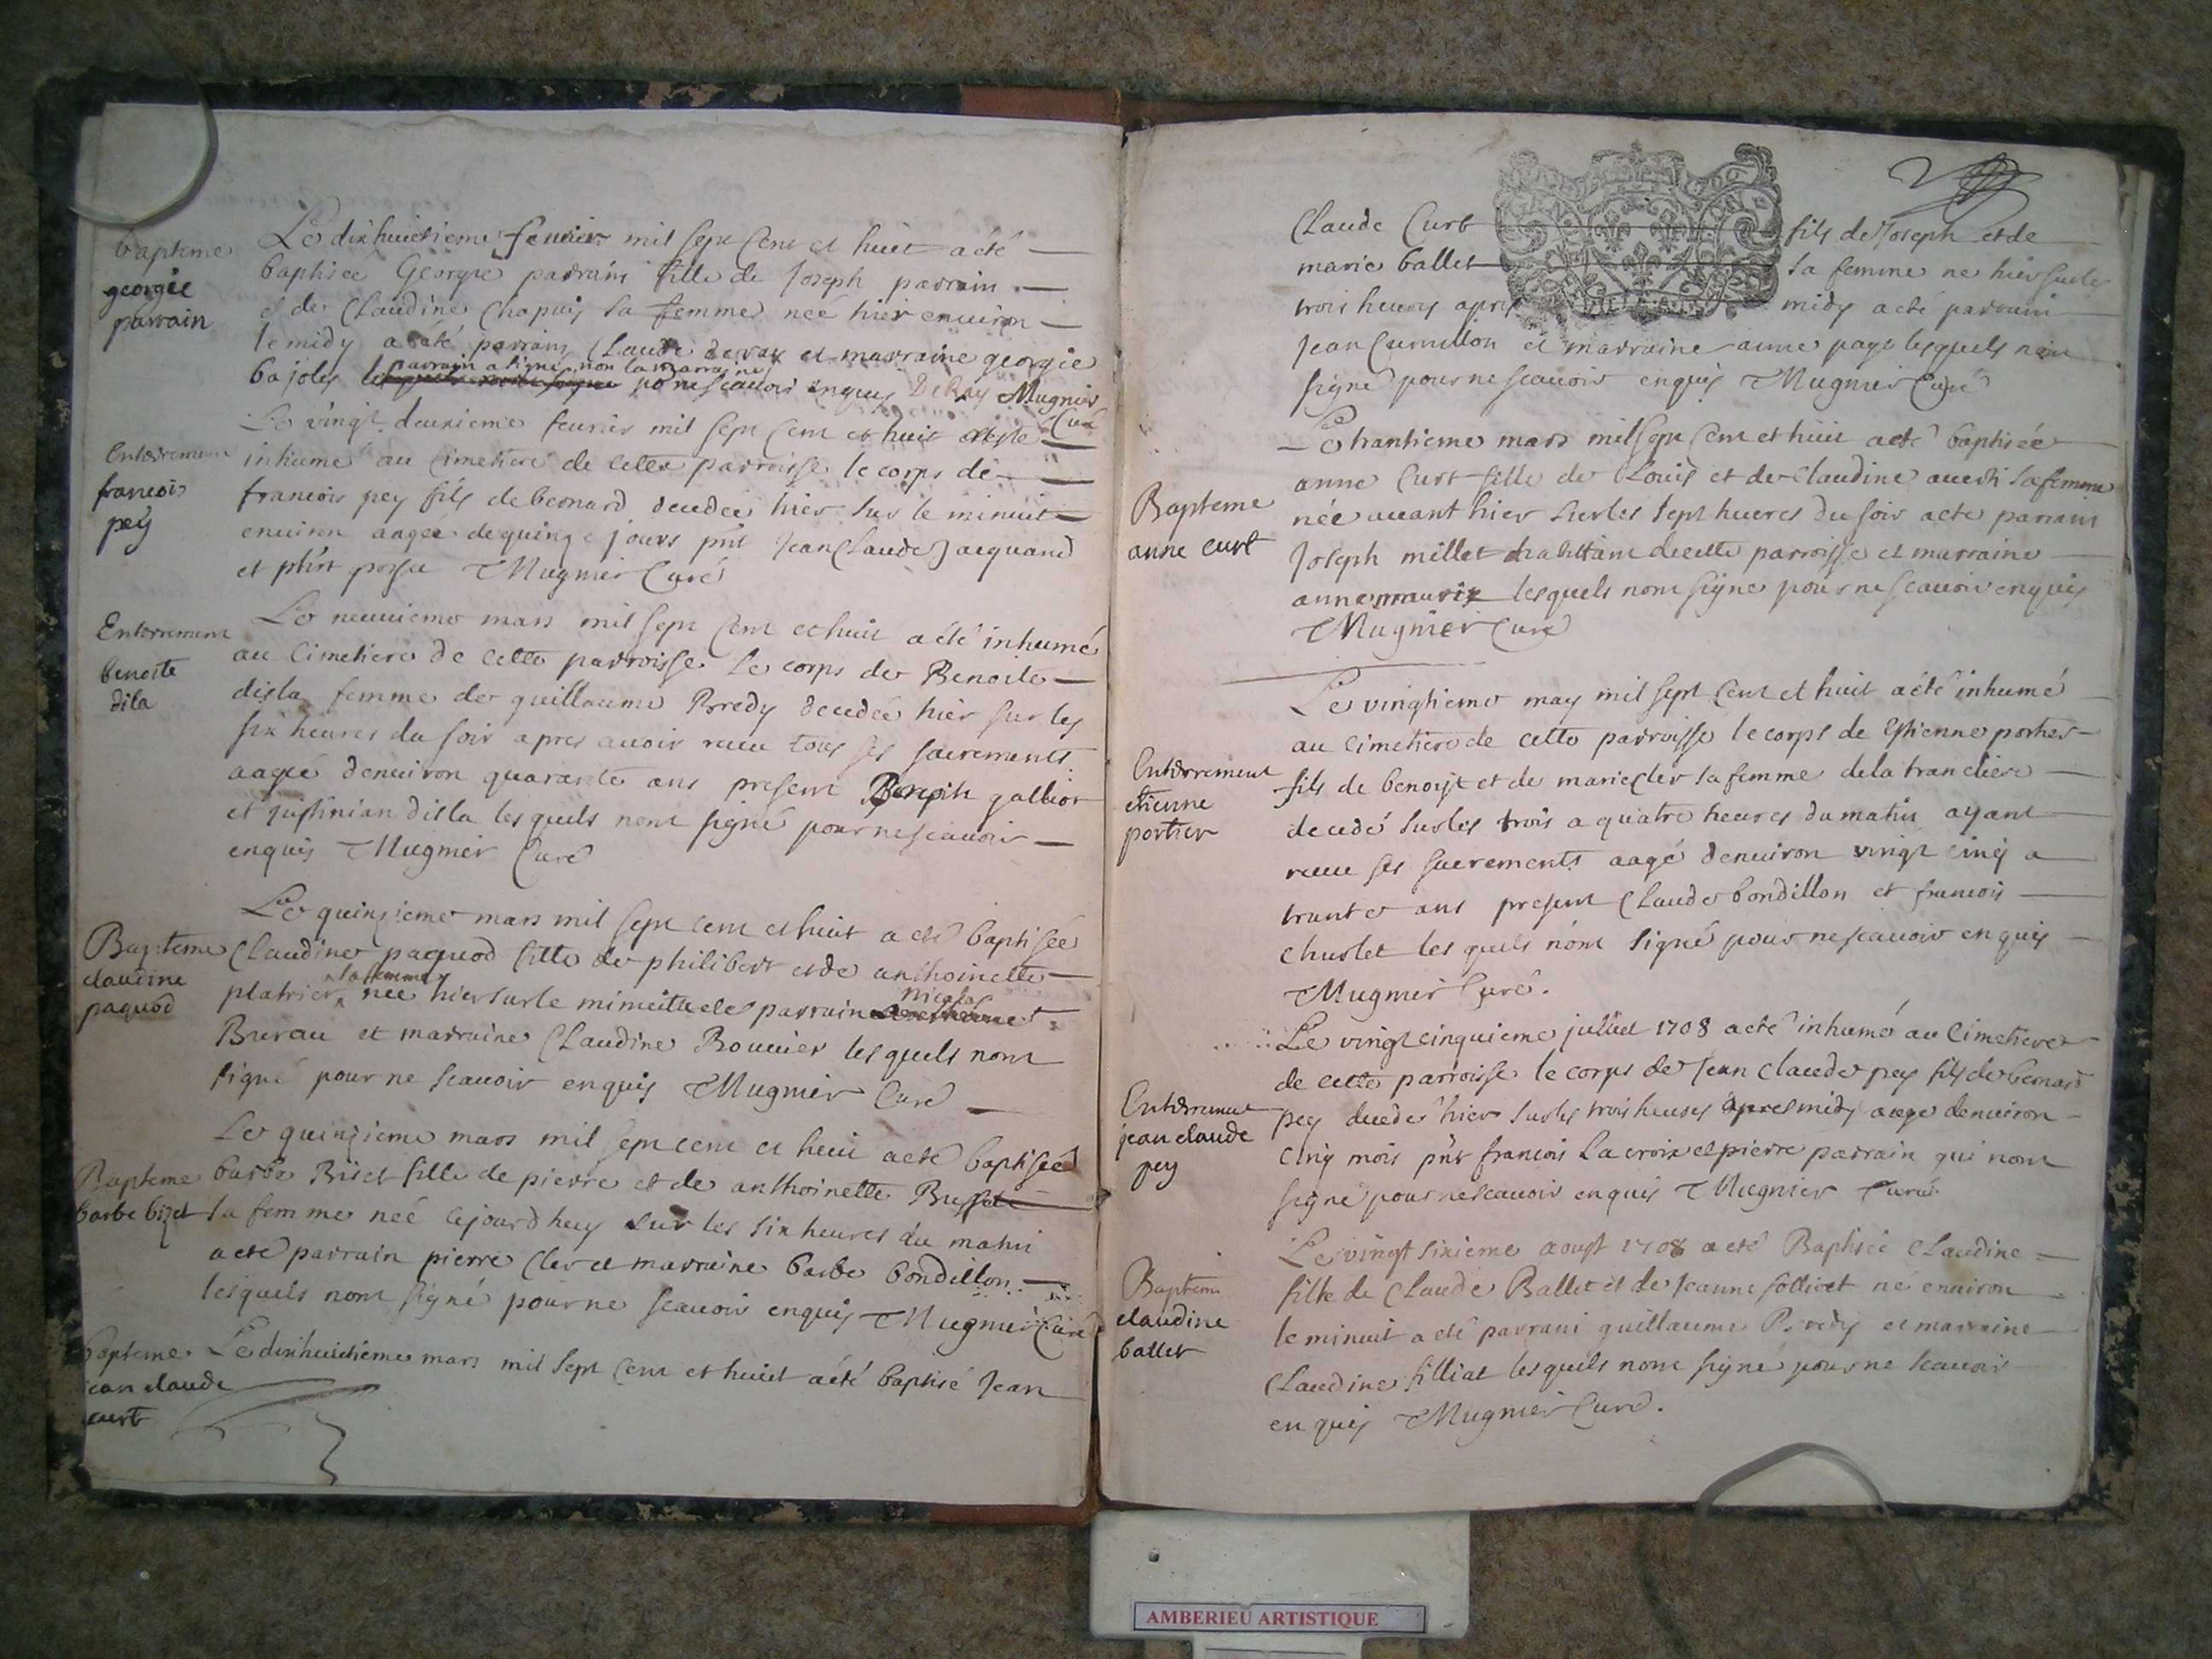 bapteme
georgie
parrain
Le dixhuictieme feurier mil sept Cent et huit a été
baptisée Georgie parrain fille de Joseph parrain
et de Claudine Chapuis sa femme née hier enuiron
le midy a été parrain Claude deray et marraine georgie
parrain a signé non la marraine
bajoles pō ne scauoir enquis DeRay Mugnier
Curé
Enterrement
francois
pey
Le vingt deuxieme feurier mil sept Cent et huit a esté
inhumé au Cimetiere de cette parroisse le corps de
francois pey fils de bernard decedée hier sur le minuit
enuiron aagée de quinze jours pnt Jean Claude Jacquand
et phrt Mugnier Curé
Enterrement
benoite
dila
Le neuuieme mars mil sept Cent et huit a été inhumé
au Cimetiere de cette parroisse le corps de Benoite
disla femme de guillaume Peredy decedée hier sur les
six heures du soir apres auoir receu tous ses sacrements
aagée denuiron quarante ans present Benoit galliot
et justinian disla lesquels nont signé pour ne scauoir
enquis Mugnier Curé
Bapteme
claudine
paquod
Le quinzieme mars mil sept cent et huit a eté baptisée
Claudine paquod fille de philibert et de anthoinette
sa femme
platrier née hier sur le minuit a eté parrain
nicolas
Bureau et marraine Claudine Bouuier lesquels nont
signé pour ne scauoir enquis Mugnier Curé
Bapteme
barbe bizet
Le quinzieme mars mil sept cent et huit a eté baptisée
barbe Biset fille de pierre et de anthoinette Bussete
sa femme née cejourdhuy sur les six heures du matin
a eté parrain pierre Cler et marraine barbe bondillon
lesquels nont signé pour ne scauoir enquis Mugnier Curé
bapteme
jean claude
curt
Le dixhuictieme mars mil sept Cent et huit a été baptisé Jean
Claude Curt fils de Joseph et de
marie ballet sa femme ne hier sur les
trois heures apres midy a eté parrain
Jean Curnillon et marraine anne page lesquels nont
signé pour ne scauoir enquis Mugnier Curé
Bapteme
anne curt
Le trantieme mars mil sept Cent et huit a eté baptisée
anne Curt fille de Louis et de Claudine sa femme
née auant hier sur les sept heures du soir a eté parrain
Joseph millet habittant de cette parroisse et marraine
anne maurix lesquels nont signe pour ne scauoir enquis
Mugnier Curé
Enterrement
etienne
portier
Le vingtieme may mil sept Cent et huit a été inhumé
au Cimetiere de cette parroisse le corps de Estienne portier
fils de benoist et de marie cler sa femme de la trancliere
decedé sur les trois a quatre heures du matin ayant
receu ses sacrements aagé denuiron vingt cinq a
trante ans present Claude bondillon et francois
churlet les quels nont signé pour ne scauoir enquis
Mugnier Curé.
Enterrement
jean claude
pey
Le vingt cinquieme juillet 1708 a eté inhumé au Cimetiere
de cette parroisse le corps de Jean Claude pey fils de bernard
pey decedé hier sur les trois heures apres midy aage denuiron
Cinq mois pnt francois Lacroix et pierre parrain qui nont
signé pour ne scauoir enquis Mugnier Curé
Baptem
claudine
ballet
Le vingt sixieme aoust 1708 a eté Baptisée Claudine
fille de Claude Ballet et de Jeanne né enuiron
le minuit a eté parrain guillaume Peredy et marraine
Claudine filliat lesquels nont signé pour ne scauoir
en quis Mugnier Curé.
AMBERIEU ARTISTIQUE